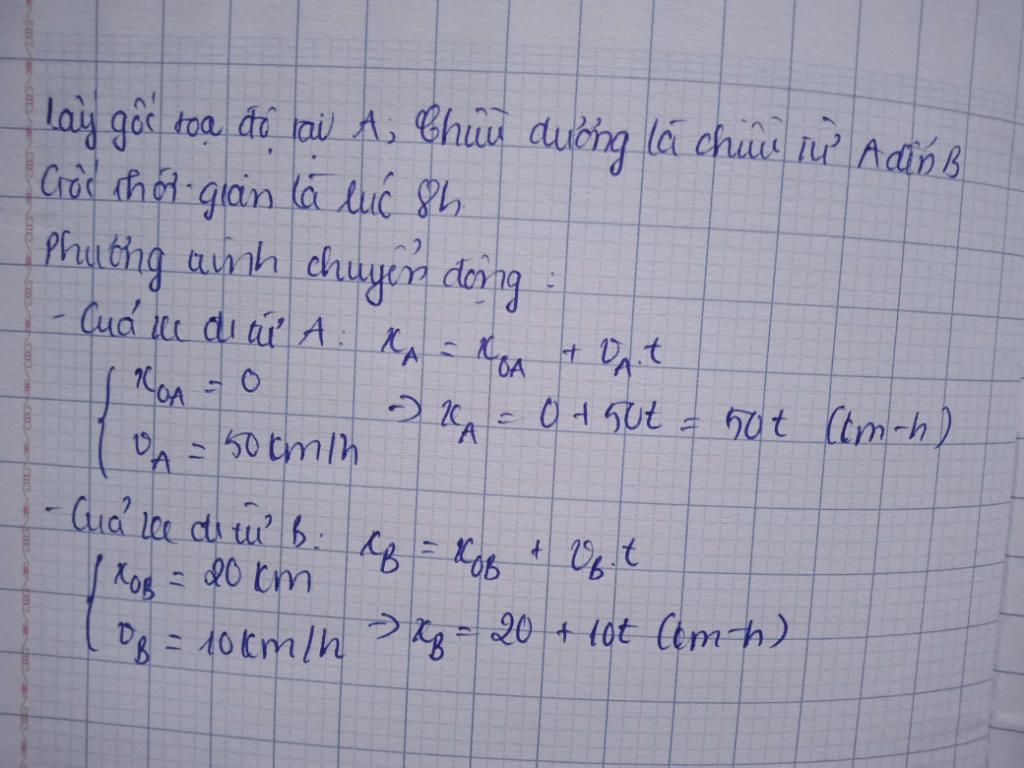 Lấy gốc toạ độ tại A, Chiều dương là chiều từ A đến B
Gốc thời gian là lúc 8h
Phương trình chuyển động :
- Của xe đi từ A: x_A = x_0A + v_A.t
x_0A = 0
v_A = 50km/h => x_A = 0 + 50t = 50t (km-h)
- Của xe đi từ B: x_B = x_0B + v_B.t
x_0B = 20km
v_B = 10km/h => x_B = 20 + 10t (km-h)